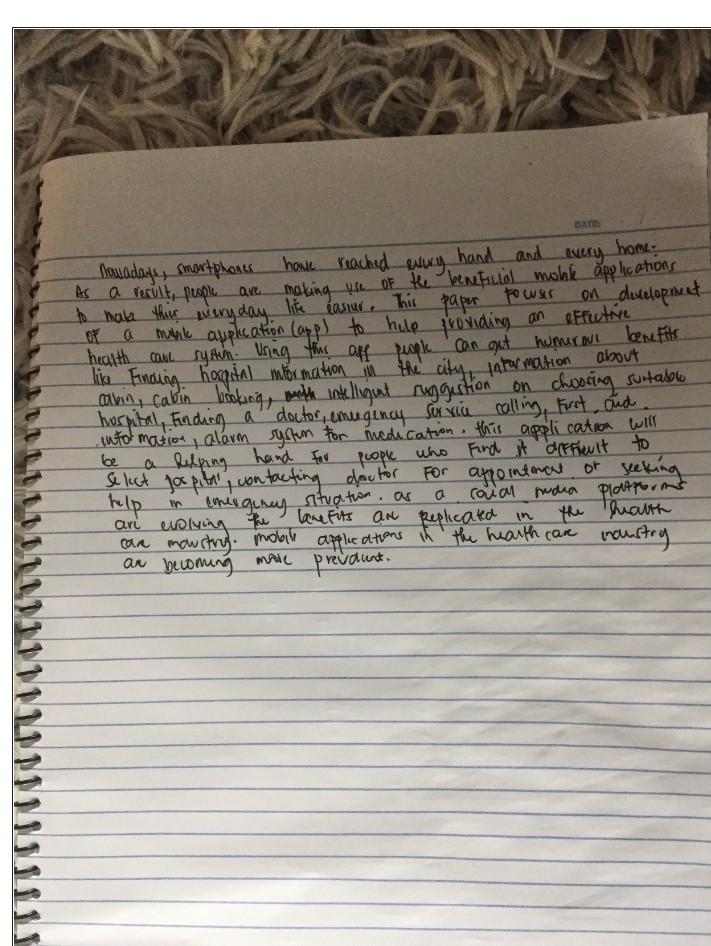 DATE:
Nowadays, smartphones have reached every hand and every home.
As a result, people are making use of the beneficial mobile applications
to make their everyday life easier. This paper focus on development
of a mobile application (app) to help providing an effective
health care system. Using this app people can get numerous benefits
like Finding hospital information in the city, information about
cabin, cabin booking, intelligent suggestion on choosing suitable
hospital, Finding a doctor, emergency service calling, First aid
information, alarm system for medication. this application will
be a helping hand for people who find it difficult to
select hospital, contacting doctor for appointment or seeking
help in emergency situation. as a social media platforms
are evolving the benefits are replicated in the health
care industry. mobile applications in the health care industry
are becoming more prevalent.